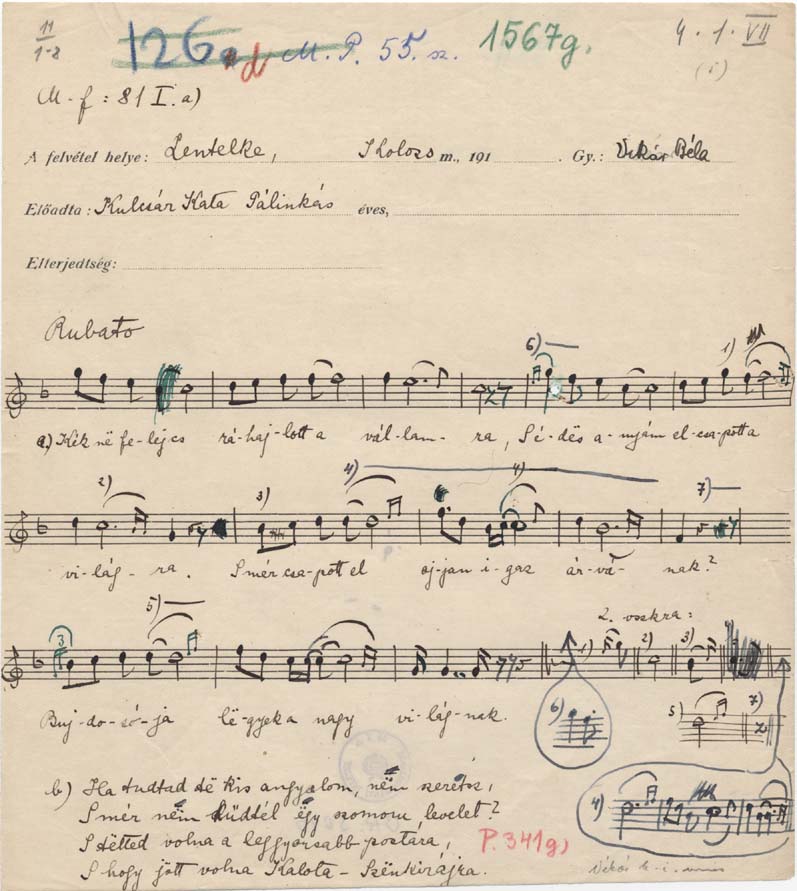 11
1-8
126a d M. P. 55. sz. 1567g. 4. 1. VII
(5)
M-f: 81 I. a)
A felvétel helye: Zentelke, Kolozs m., 191 . Gy.: Vikár Béla
Előadta: Kulcsár Kata Pálinkás éves,
Elterjedtség:
Rubato
6) 1)
a) Kék në-fe-lejcs rá-haj-lott a vál-lam-ra, É-dës a-nyám el-csa-pott a
2) 3) 4) 4) 7)
vi-lág-ra. Smér csa-pott el oj-jan i-gaz ár-vá-nak?
5) 2. vsszkra:
3 1) 2) 3)
Buj-do-só-ja lë-gyek a nagy vi-lág-nak.
6) 5) 7)
b) Ha tudtad dë kis angyalom, nëm szeretsz,
Smér nëm küddtél ëgy szomoru levelet?
Stëtted volna a leggyorsabb postára,
4)
P. 341g)
S hogy jött volna Kalota-Szënkirájra.